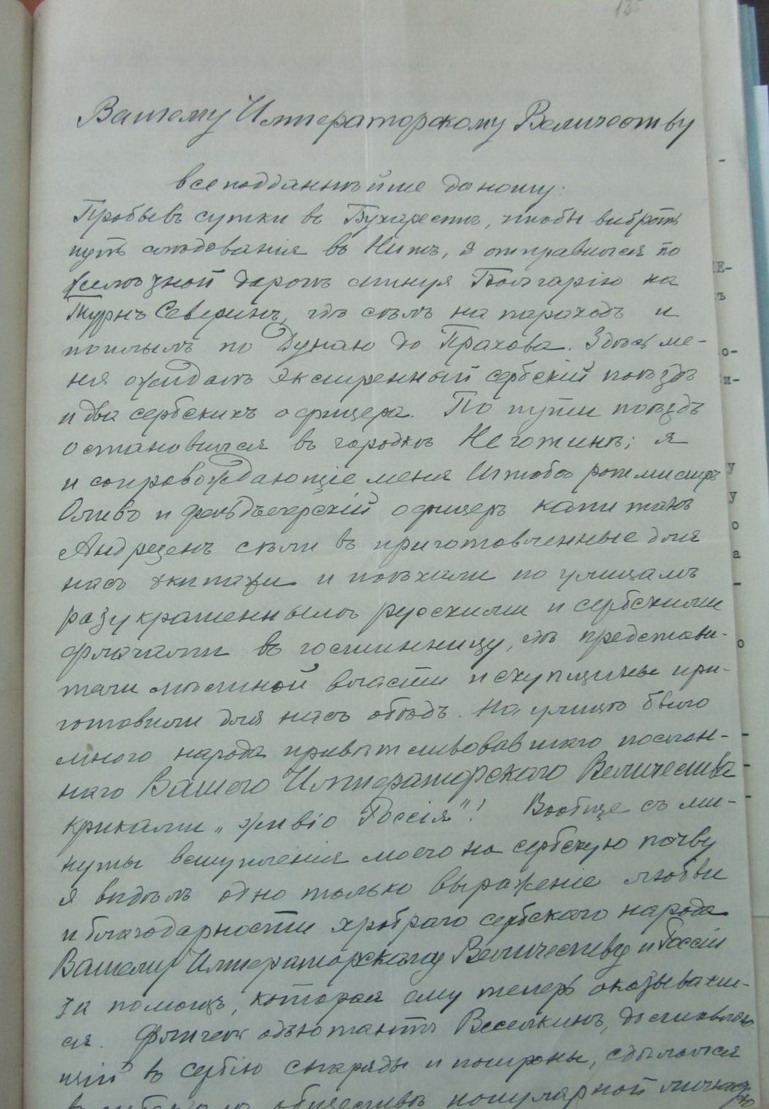 135
Вашему Императорскому Величеству
всеподданнѣйше доношу:
Пробывъ сутки въ Бухарестѣ, чтобы выбрать
путь слѣдованія въ Нишъ, я отправился по
желѣзной дорогѣ минуя Болгарію на
Турнъ Северинъ, гдѣ сѣлъ на пароходъ и
поплылъ по Дунаю до Прахова. Здѣсь ме-
ня ожидалъ экстренный сербскій поѣздъ
и два сербскихъ офицера. По пути поѣздъ
остановился въ городкѣ Неготинѣ; я
и сопровождающіе меня Штабсъ ротмистръ
Оливъ и фельдъегерскій офицеръ капитанъ
Андреенъ сѣли въ приготовленные для
насъ экипажи и поѣхали по улицамъ
разукрашеннымъ русскими и сербскими
флагами въ гостинницу, гдѣ представи-
тели мѣстной власти и скупщины при-
готовили для насъ обѣдъ. На улицѣ было
много народа привѣтствовавшаго послан-
наго Вашего Императорскаго Величества
криками „живіо Россія"! Вообще съ ми-
нуты вступленія моего на сербскую почву
я видѣлъ одно только выраженіе любви
и благодарности храбраго сербскаго народа
Вашему Императорскому Величеству и Россіи
за помощь, которая ему теперь оказывает-
ся. Флигель адъютантъ Веселкинъ, доставляю
щій въ сербію снаряды и патроны, сдѣлался
въ обществѣ популярной личностью